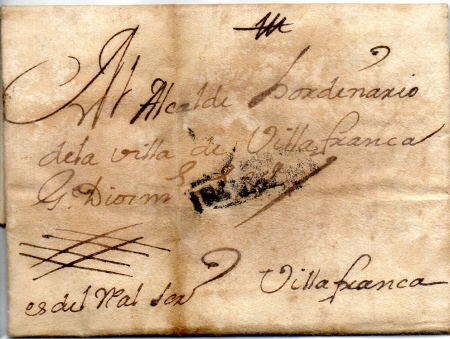 Al Alcalde hordenario
de la villa de Villafranca
G. Dios m
es del Rl ser
Villafranca